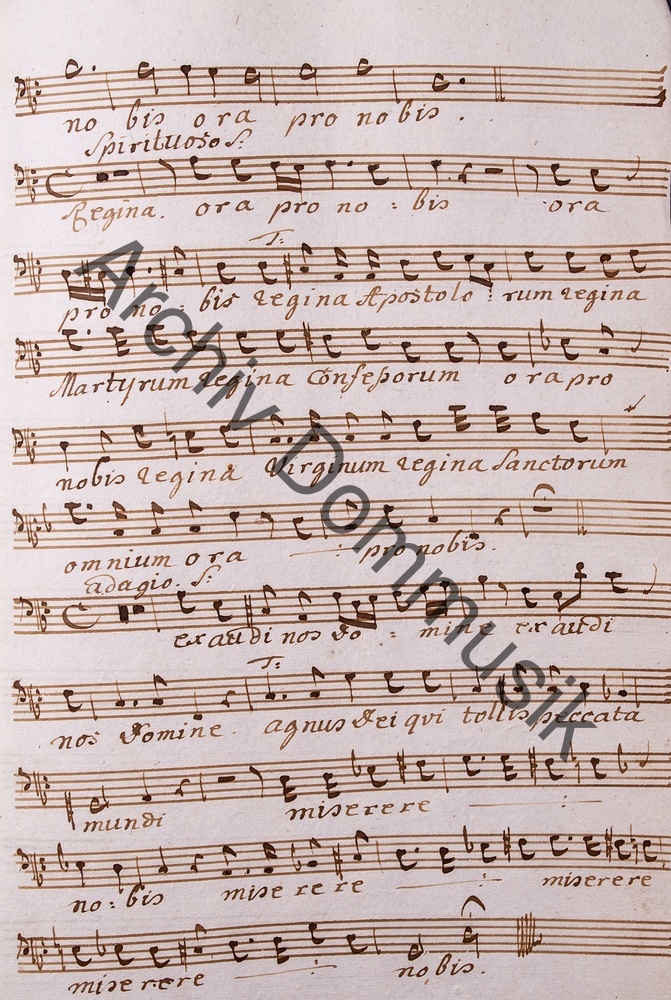 no bis ora pro nobis.
Spirituoso S:
Regina. ora pro no: bis ora
T:
pro no: bis regina Apostolo: rum regina
Martyrum regina Confeßorum ora pro
nobis regina Virginum regina Sanctorum
omnium ora : pro nobis.
adagio. S:
exaudi nos do: mine exaudi
T:
nos Domine. agnus Dei qvi tollis peccata
mundi miserere :
no: bis miserere : miserere
miserere : nobis.
Archiv Dommusik